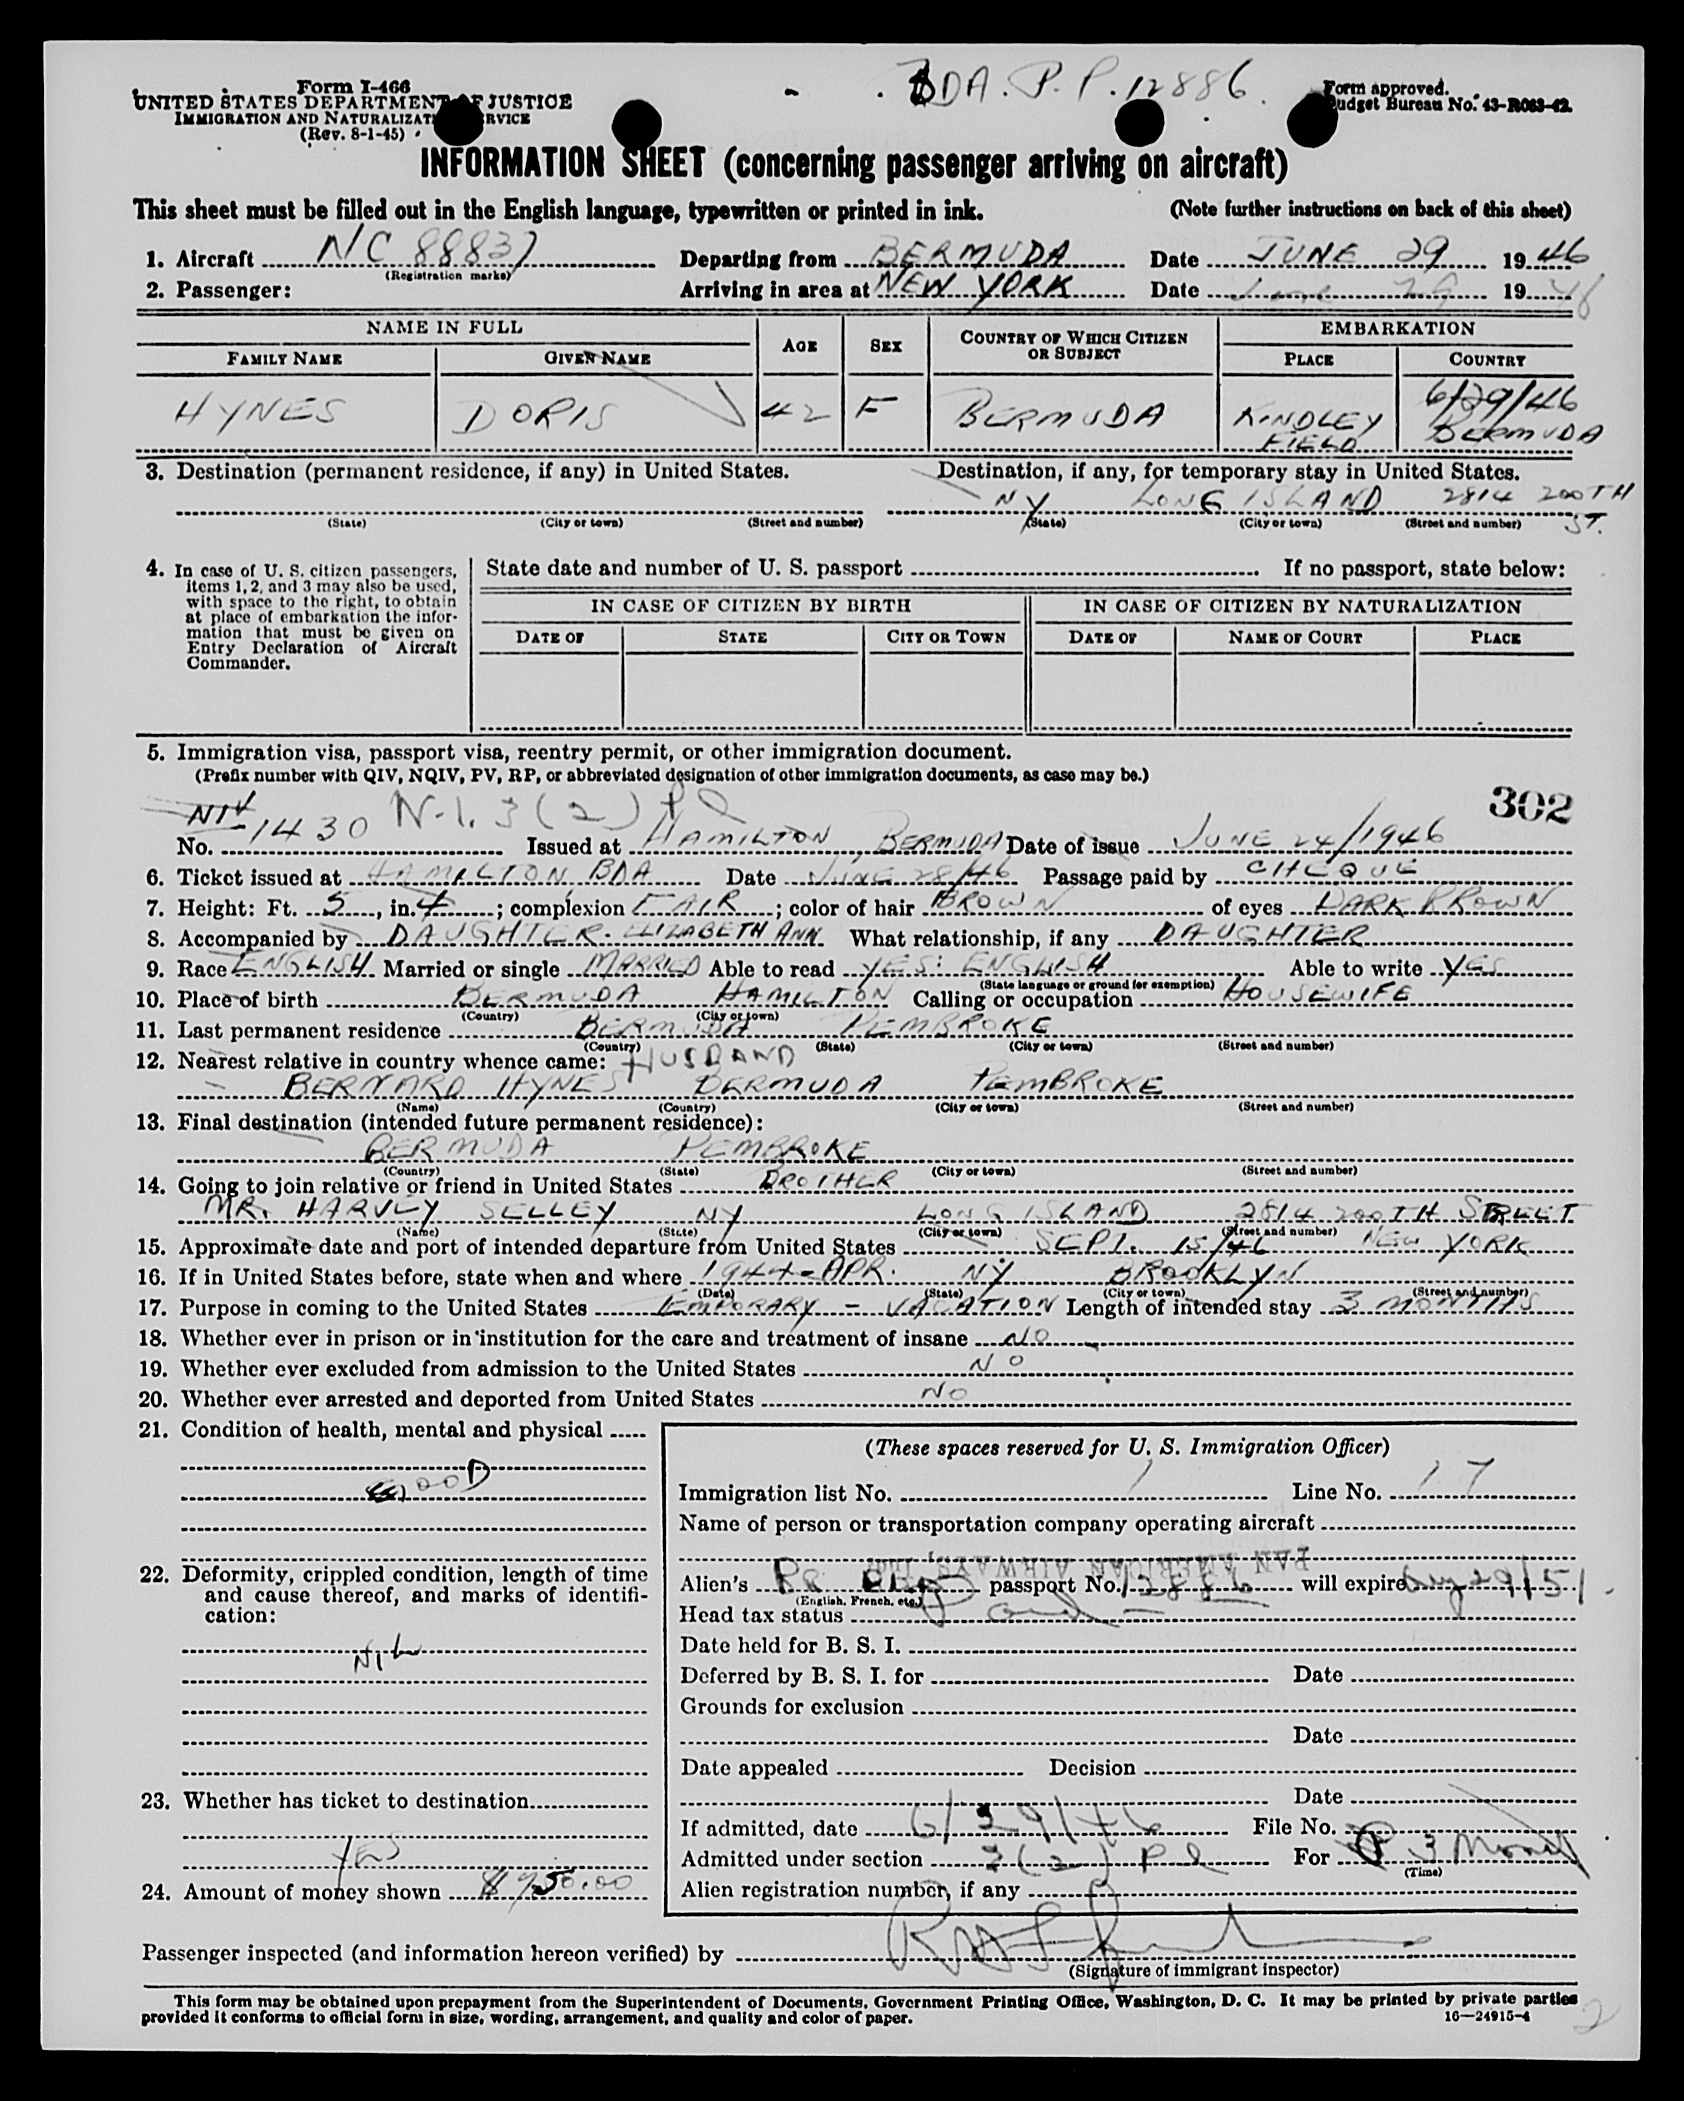 Form I-466
BDA. P. P. 12886
Form approved.
UNITED STATES DEPARTMENT OF JUSTICE
Budget Bureau No. 43-R063-42.
IMMIGRATION AND NATURALIZATION SERVICE
(Rev. 8-1-45)
INFORMATION SHEET (concerning passenger arriving on aircraft)
This sheet must be filled out in the English language, typewritten or printed in ink. (Note further instructions on back of this sheet)
1. Aircraft NC 88837 Departing from BERMUDA Date JUNE 29 1946
(Registration marks)
2. Passenger: Arriving in area at NEW YORK Date June 29 1946
NAME IN FULL AGE SEX COUNTRY OF WHICH CITIZEN OR SUBJECT EMBARKATION
FAMILY NAME GIVEN NAME PLACE COUNTRY
6/29/46
HYNES DORIS 42 F BERMUDA KINDLEY FIELD BERMUDA
3. Destination (permanent residence, if any) in United States. Destination, if any, for temporary stay in United States.
NY LONG ISLAND 2814 200TH ST.
(State) (City or town) (Street and number) (State) (City or town) (Street and number)
4. In case of U. S. citizen passengers, items 1, 2, and 3 may also be used, with space to the right, to obtain at place of embarkation the information that must be given on Entry Declaration of Aircraft Commander.
State date and number of U. S. passport If no passport, state below:
IN CASE OF CITIZEN BY BIRTH IN CASE OF CITIZEN BY NATURALIZATION
DATE OF STATE CITY OR TOWN DATE OF NAME OF COURT PLACE
5. Immigration visa, passport visa, reentry permit, or other immigration document.
(Prefix number with QIV, NQIV, PV, RP, or abbreviated designation of other immigration documents, as case may be.)
302
NIV N-1. 3(2) Pl
No. 1430 Issued at HAMILTON, BERMUDA Date of issue JUNE 24/1946
6. Ticket issued at HAMILTON BDA Date JUNE 28/46 Passage paid by CHEQUE
7. Height: Ft. 5, in. 4; complexion FAIR; color of hair BROWN of eyes DARK BROWN
8. Accompanied by DAUGHTER. ELIZABETH ANN What relationship, if any DAUGHTER
9. Race ENGLISH Married or single MARRIED Able to read YES: ENGLISH Able to write YES
(State language or ground for exemption)
10. Place of birth BERMUDA HAMILTON Calling or occupation HOUSEWIFE
(Country) (City or town)
11. Last permanent residence BERMUDA PEMBROKE
(Country) (State) (City or town) (Street and number)
12. Nearest relative in country whence came: HUSBAND
BERNARD HYNES BERMUDA PEMBROKE
(Name) (Country) (City or town) (Street and number)
13. Final destination (intended future permanent residence):
BERMUDA PEMBROKE
(Country) (State) (City or town) (Street and number)
14. Going to join relative or friend in United States BROTHER
MR. HARVEY SELLEY NY LONG ISLAND 2814 200TH STREET
(Name) (State) (City or town) (Street and number)
15. Approximate date and port of intended departure from United States SEPT. 15/46 NEW YORK
16. If in United States before, state when and where 1944-APR. NY BROOKLYN
(Date) (State) (City or town) (Street and number)
17. Purpose in coming to the United States TEMPORARY - VACATION Length of intended stay 3 MONTHS
18. Whether ever in prison or in institution for the care and treatment of insane NO
19. Whether ever excluded from admission to the United States NO
20. Whether ever arrested and deported from United States NO
21. Condition of health, mental and physical
GOOD
22. Deformity, crippled condition, length of time and cause thereof, and marks of identification:
NIL
23. Whether has ticket to destination
YES
24. Amount of money shown $950.00
(These spaces reserved for U. S. Immigration Officer)
Immigration list No. 1 Line No. 17
Name of person or transportation company operating aircraft
PAN AMERICAN AIRWAYS, INC.
Alien's passport No. 12886 will expire Aug 29/51
(English, French, etc.)
Head tax status
Date held for B. S. I.
Deferred by B. S. I. for Date
Grounds for exclusion
Date
Date appealed Decision
Date
If admitted, date 6/29/46 File No.
Admitted under section 3(2) Pl For 3 Months
(Time)
Alien registration number, if any
Passenger inspected (and information hereon verified) by
(Signature of immigrant inspector)
This form may be obtained upon prepayment from the Superintendent of Documents, Government Printing Office, Washington, D. C. It may be printed by private parties
provided it conforms to official form in size, wording, arrangement, and quality and color of paper. 16—24915-4
2